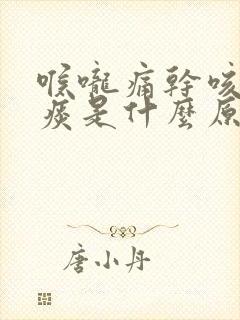 喉嚨痛幹咳
痰是什麼原
唐小丹